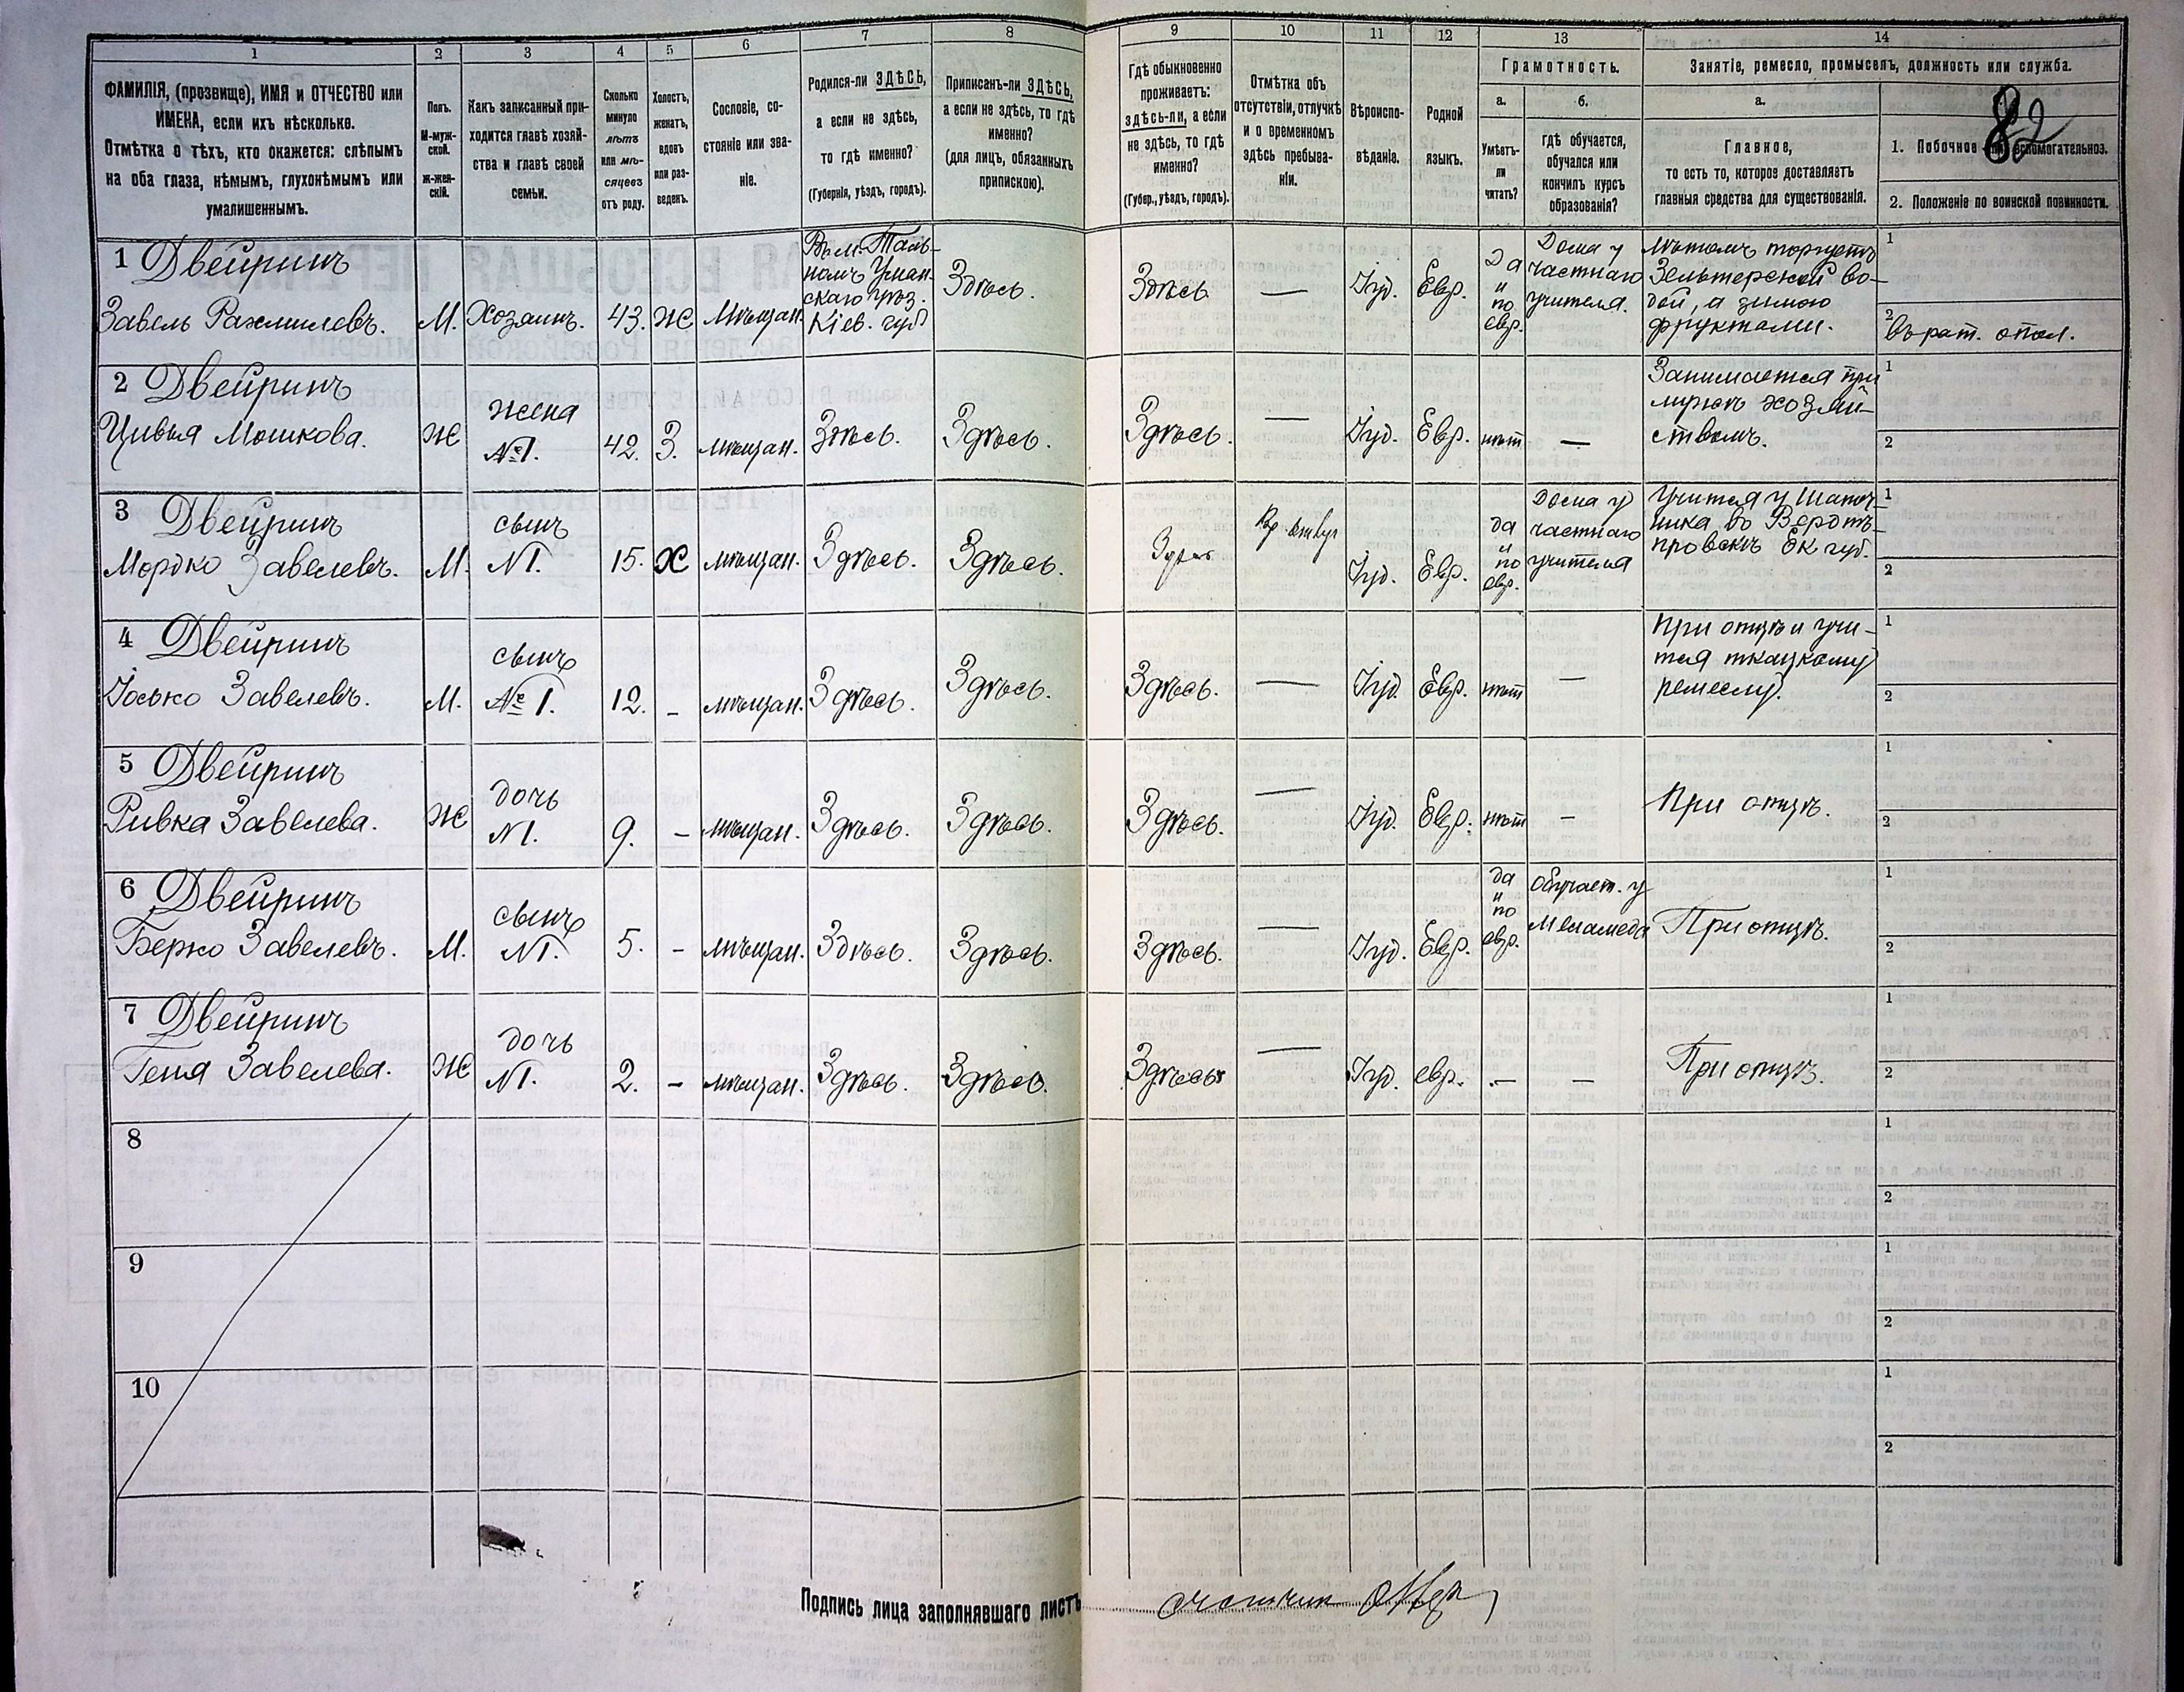 1
2
3
4
5
6
7
8
9
10
11
12
13
14
ФАМИЛІЯ, (прозвище), ИМЯ и ОТЧЕСТВО или
ИМЕНА, если ихъ нѣсколько.
Отмѣтка о тѣхъ, кто окажется: слѣпымъ
на оба глаза, нѣмымъ, глухонѣмымъ или
умалишеннымъ.
Полъ.
М-муж-
ской.
ж-жен-
скій.
Какъ записанный при-
ходится главѣ хозяй-
ства и главѣ своей
семьи.
Сколько
минуло
лѣтъ
или мѣ-
сяцевъ
отъ роду.
Холостъ,
женатъ,
вдовъ
или раз-
веденъ.
Сословіе, со-
стояніе или зва-
ніе.
Родился-ли ЗДѢСЬ,
а если не здѣсь,
то гдѣ именно?
(Губернія, уѣздъ, городъ).
Приписанъ-ли ЗДѢСЬ,
а если не здѣсь, то гдѣ
именно?
(для лицъ, обязанныхъ
припискою).
Гдѣ обыкновенно
проживаетъ:
здѣсь-ли, а если
не здѣсь, то гдѣ
именно?
(Губер., уѣздъ, городъ).
Отмѣтка объ
отсутствіи, отлучкѣ
и о временномъ
здѣсь пребыва-
ніи.
Вѣроиспо-
вѣданіе.
Родной
языкъ.
Грамотность.
а.
Умѣетъ-
ли
читать?
б.
гдѣ обучается,
обучался или
кончилъ курсъ
образованія?
Занятіе, ремесло, промыселъ, должность или служба.
а.
Главное,
то есть то, которое доставляетъ
главныя средства для существованія.
82
1. Побочное или вспомогательное.
2. Положеніе по воинской повинности.
1 Двейринъ
Завель Рахмилевъ.
М.
Хозаинъ.
43.
Ж
Мѣщан.
Въ м. Таль-
номъ Уман-
скаго уѣз.
Кіев. губ
Здѣсь.
Здѣсь
—
Іуд.
Евр.
Да
и
по
евр.
Дома у
частнаго
учителя.
Лѣтомъ торгуетъ
Зельтерской во-
дой, а зимою
фруктами.
1
2
въ рат. опол.
2 Двейринъ
Цивья Мошкова.
Ж
жена
№1.
42.
З.
мѣщан.
Здѣсь.
Здѣсь.
Здѣсь.
—
Іуд.
Евр.
нѣт
—
Занимается при
мужѣ хозяй-
ствомъ.
1
2
3 Двейринъ
Мордко Завелевъ.
М.
сынъ
N1.
15.
Х
мѣщан.
Здѣсь.
Здѣсь.
Здѣсь
Іуд.
Евр.
да
и
по
евр.
Дома у
частнаго
учителя
Учится у Шапоч-
ника во
Ек губ.
1
2
4 Двейринъ
Іосько Завелевъ.
М.
сынъ
№ 1.
12.
-
мѣщан.
Здѣсь.
Здѣсь.
Здѣсь.
—
Іуд.
Евр.
нѣт
—
При отцѣ и учи-
тся ткацкому
ремеслу.
1
2
5 Двейринъ
Ривка Завелева.
Ж
дочь
N1.
9.
-
мѣщан.
Здѣсь.
Здѣсь.
Здѣсь.
—
Іуд.
Евр.
нѣт
—
При отцѣ.
1
2
6 Двейринъ
Берко Завелевъ.
М.
сынъ
N1.
5.
-
мѣщан.
Здѣсь.
Здѣсь.
Здѣсь.
—
Іуд.
Евр.
да
и
по
евр.
Обучает. у
Меламеда
При отцѣ.
1
2
7 Двейринъ
Геня Завелева.
Ж
дочь
N1.
2.
-
мѣщан.
Здѣсь.
Здѣсь.
Здѣсь
—
Іуд.
евр.
—
—
При отцѣ.
1
2
8
1
2
9
1
2
10
1
2
Подпись лица заполнявшаго листъ
счетчик